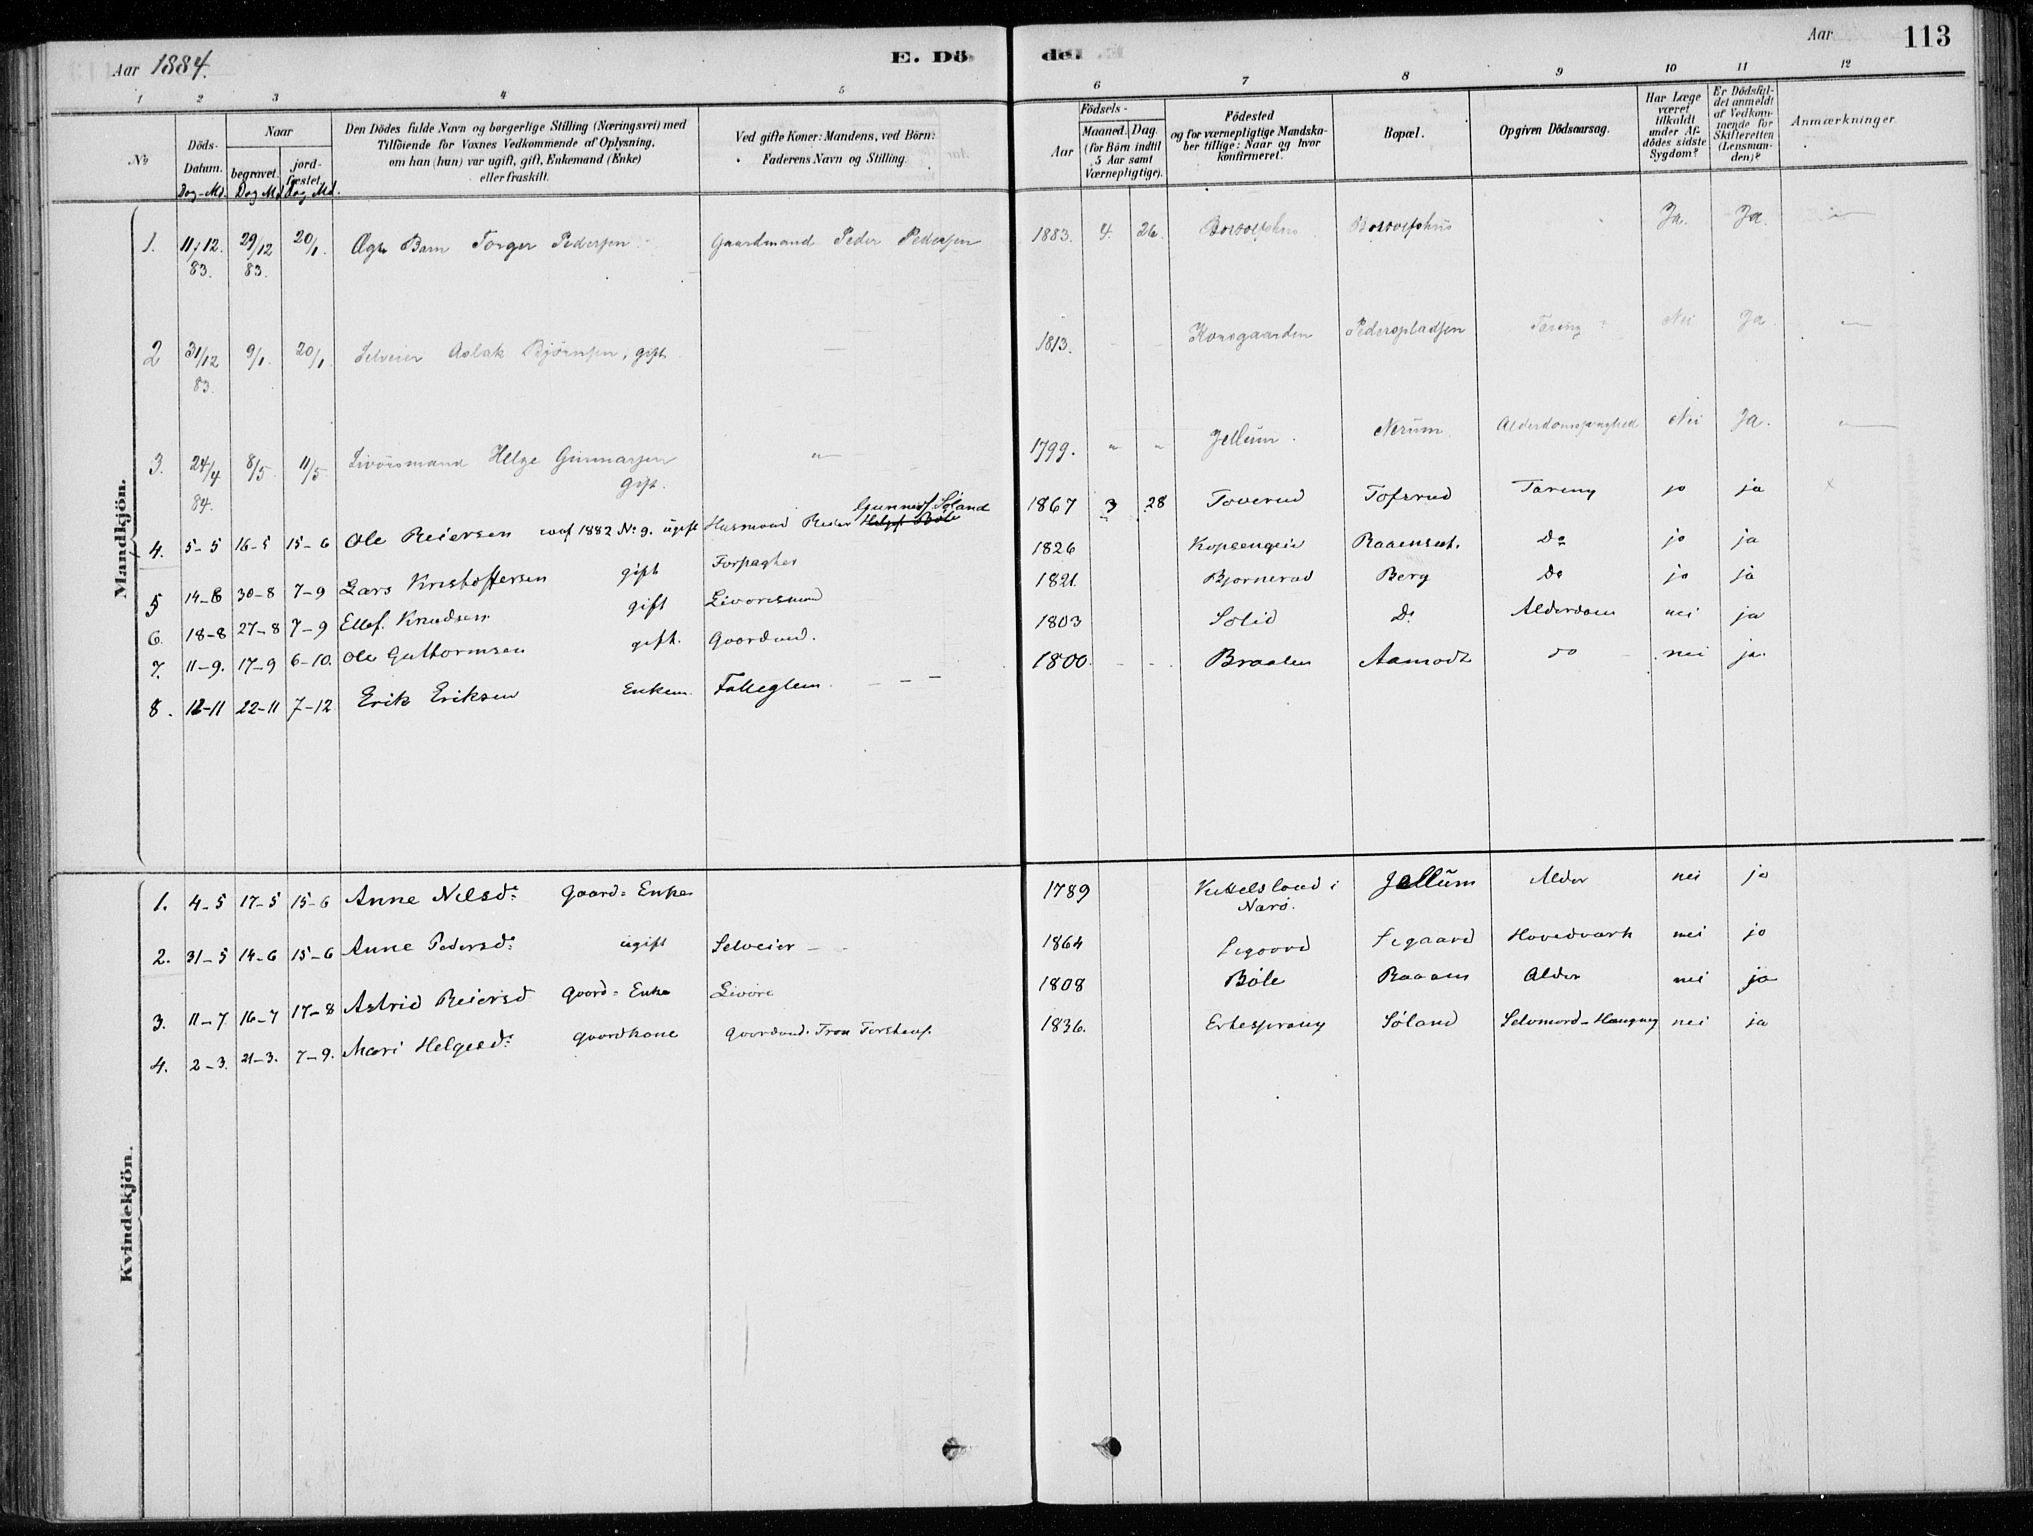 Aar 1884.
E. Döde.
Aar
113
1 2 3 4 5 6 7 8 9 10 11 12
No
Döds-Datum.
Naar
begravet.
jordfæstet.
Dag-Md. Dag Md. Dag Md.
Den Dödes fulde Navn og borgerlige Stilling (Næringsvei) med
Tilföiende for Voxnes Vedkommende af Oplysning,
om han (hun) var ugift, gift, Enkemand (Enke)
eller fraskilt.
Ved gifte Koner: Mandens, ved Börn:
Faderens Navn og Stilling.
Födsels-
Aar
Maaned. Dag.
(for Börn indtil
5 Aar samt
Værnepligtige).
Födested
og for værnepligtige Mandskaber tillige: Naar og hvor
konfirmeret.
Bopæl.
Opgiven Dödsaarsag.
Har Læge været tilkaldt under Afdödes sidste Sygdom?
Er Dödsfaldet anmeldt af Vedkommende for Skifteretten (Lensmanden)?
Anmærkninger
Mandkjön.
1. 11/12. 83. 29/12 83. 20/1. Ægte Barn Torger Pedersen Gaardmand Peder Pedersen 1883. 4 26. Ja. Ja. "
2 31/12 83. 9/1. 20/1 Selveier Aslak Bjørnsen, gift — 1813. Konsgaarden Pederspladsen Tæring? Nei Ja. "
3. 24/4 84. 8/5. 11/5. Livøresmand Helge Gunnarsen gift. " 1799. " " Jellum. Nerum. Alderdomssvaghed Nei Ja. "
4. 5-5 16-5 15-6 Ole Reiersen conf 1882 No 9. ugift Husmand Reier Helgs. Bøle Gunners. Søland 1867 3 28 Toverud Tofsrud Tæring ja ja x
5 14-8 30-8 7-9 Lars Kristoffersen gift Forpagter 1826 Kopsengeie Do ja ja
6. 18-8 27-8 7-9 Ellef Knudsen gift Livøresmand 1821. Bjørnerud Berg Do ja ja
7. 11-9. 17-9 6-10. Ole Guttormsen gift. Gaardmd. 1803 Solid Do Alderdom nei ja
8. 12-11 22-11 7-12 Erik Eriksen Enkem. Fattiglem. 1800. Braaten Aamodt do nei ja.
Kvindekjön.
1. 4-5 17-5 15-6 Anne Nilsdr. Gaard= Enke 1789 i Narø. Jellum Alder nei ja
2. 31-5 14-6 15-6 Anne Pedersdr. ugift Selveier 1864 Segaard Segaard Hovedværk nei ja
3. 11-7 16-7 17-8 Astrid Reiersd Gaard= Enke Livøre 1808 Bøle Raaen Alder nei ja
4. 2-3. 21-3. 7-9. Mari Helgesdr. Gaardkone Gaardmd. Tron Torstens. 1836. Ertesprang Søland Selvmord - Hængning nei ja